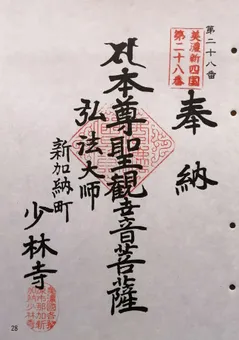 第二十八番
美濃新四国
第二十八番
奉納
本尊聖觀世音菩薩
弘法大師
新加納町
少林寺
28